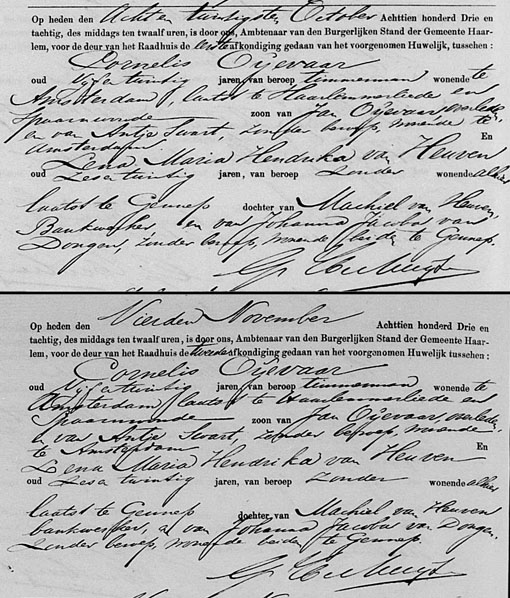 Op heden den Acht en twintigsten October Achttien honderd Drie en
tachtig, des middags ten twaalf uren, is door ons, Ambtenaar van den Burgerlijken Stand der Gemeente Haar-
lem, voor de deur van het Raadhuis de eerste afkondiging gedaan van het voorgenomen Huwelijk, tusschen:
Cornelis Oijevaar
oud Vijf en twintig jaren, van beroep timmerman wonende te
Amsterdam, laatst te Haarlemmerliede en
Spaarnwoude zoon van Jan Oijevaar overleden
en van Antje Swart, zonder beroep, wonende te
Amsterdam En
Lena Maria Hendrika van Heuven
oud Zes en twintig jaren, van beroep Zonder wonende alhier
laatst te Gennep dochter van Machiel van Heuven,
Bankwerker, en van Johanna Jacoba van
Dongen, zonder beroep, wonende beiden te Gennep.
Op heden den Vierden November Achttien honderd Drie en
tachtig, des middags ten twaalf uren, is door ons, Ambtenaar van den Burgerlijken Stand der Gemeente Haar-
lem, voor de deur van het Raadhuis de tweede afkondiging gedaan van het voorgenomen Huwelijk tusschen:
Cornelis Oijevaar
oud Vijf en twintig jaren, van beroep timmerman wonende te
Amsterdam laatst te Haarlemmerliede en
Spaarnwoude zoon van Jan Oijevaar overleden
en van Antje Swart, zonder beroep, wonende
te Amsterdam En
Lena Maria Hendrika van Heuven
oud Zes en twintig jaren, van beroep Zonder wonende alhier
laatst te Gennep dochter van Machiel van Heuven
bankwerker, en van Johanna Jacoba van Dongen.
Zonder beroep, wonende beiden te Gennep.